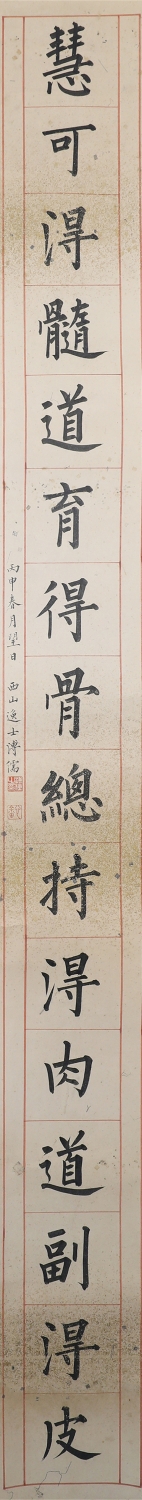 慧可淂髓道育得骨總持淂肉道副淂皮
丙申春月望日 西山逸士溥儒